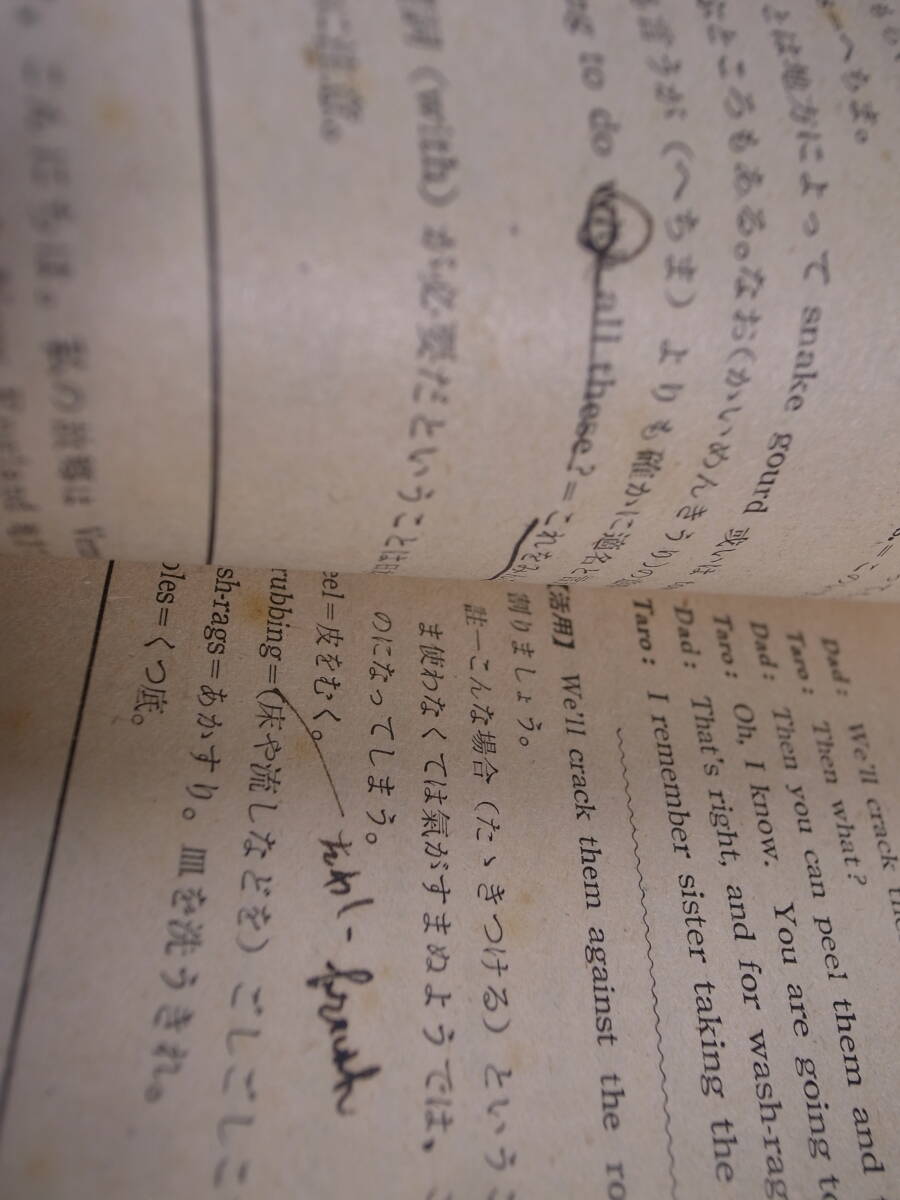 もへちま。
とは地方によって snake gourd 或いは
ぶところもある。なお(かいめんきうり)の
も言うが(へちま)よりも確かに適名と
to do with all these? = これを
詞 (with) が必要だということは
に注意。
こんにちは。私の
We'll crack
Dad: Then what?
Taro: Then you can peel them and
Dad: Oh, I know. You are going to
Taro: That's right, and for wash-rag
Dad: I remember sister taking the
Taro:
【活用】 We'll crack them against the ro
割りましょう。
註—こんな場合(たゝきつける)という
ま使わなくては氣がすまぬようでは、
のになってしまう。
eel=皮をむく。
rubbing=(床や流しなどを)ごしごしこ
sh-rags=あかすり。皿を洗うきれ。
oles=くつ底。
たわし - brush